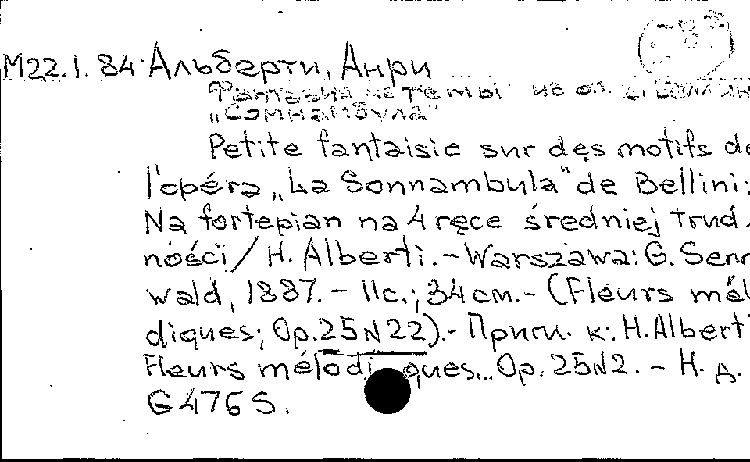 М22.1.84 Альберти, Анри
Фантазия на темы из оп.
„Сомнамбула"
Petite fantaisie sur des motifs de
l'opéra „La Sonnambula" de Bellini:
Na fortepian na 4 ręce średniej trud-
ności / H. Alberti. – Warszawa: G. Senne
wald, 1887. – 11c.; 34 см. – (Fleurs mél
diques; Op. 25 N 22). – Присп. к: H. Albert
Fleurs mélodiques... Op. 25 N 2. – Н. д.
G 476 S.